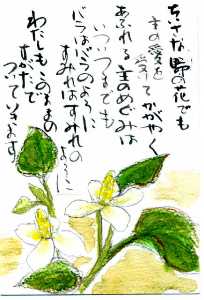 ちさな野の花でも
主の愛を
受けてかがやく
あふれる主のめぐみは
いついつまでも
バラはバラのように
すみれはすみれのように
わたしもこのままの
すがたで
ついていきます。